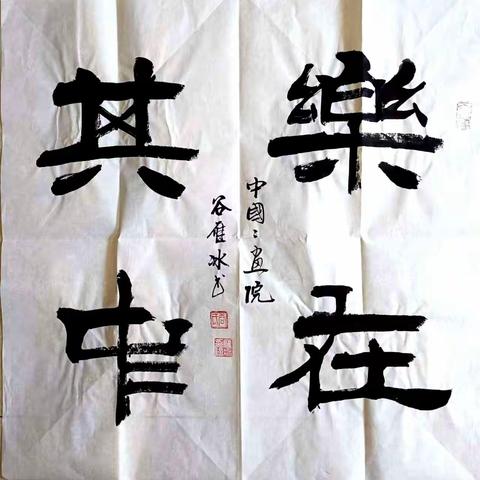 樂在
其中
中國〻畫院
谷雁冰书